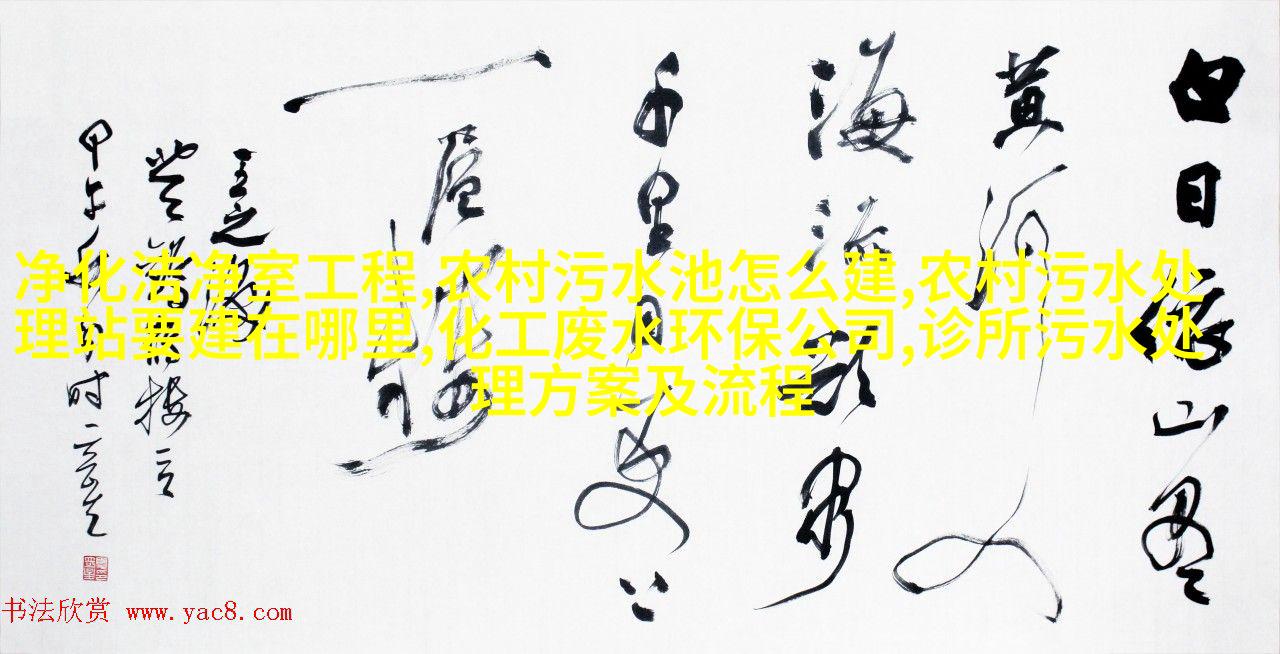 白日依山尽
黄河入
海流欲穷
千里目更上
一层楼
王之涣
净化洁净室工程,农村污水池怎么建,农村污水处
理站要建在哪里,化工废水环保公司,诊所污水处
理方案及流程
书法欣赏 www.yac8.com